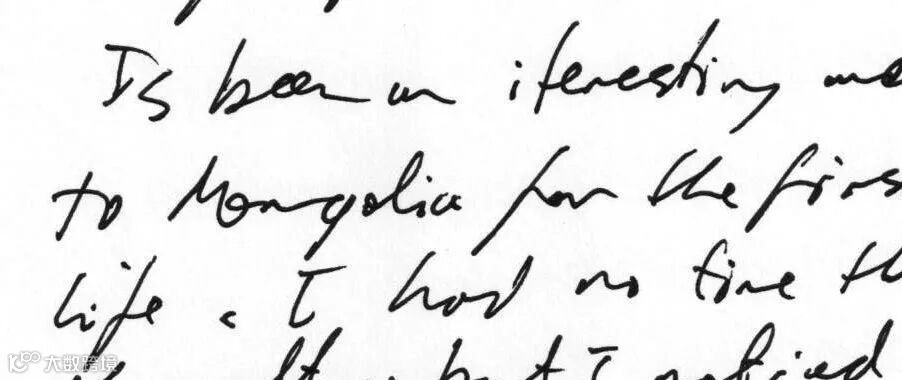 Is been an iteresting
to Mongolia for the firs
life. I had no time th
but I noticed
K°° 大数跨境